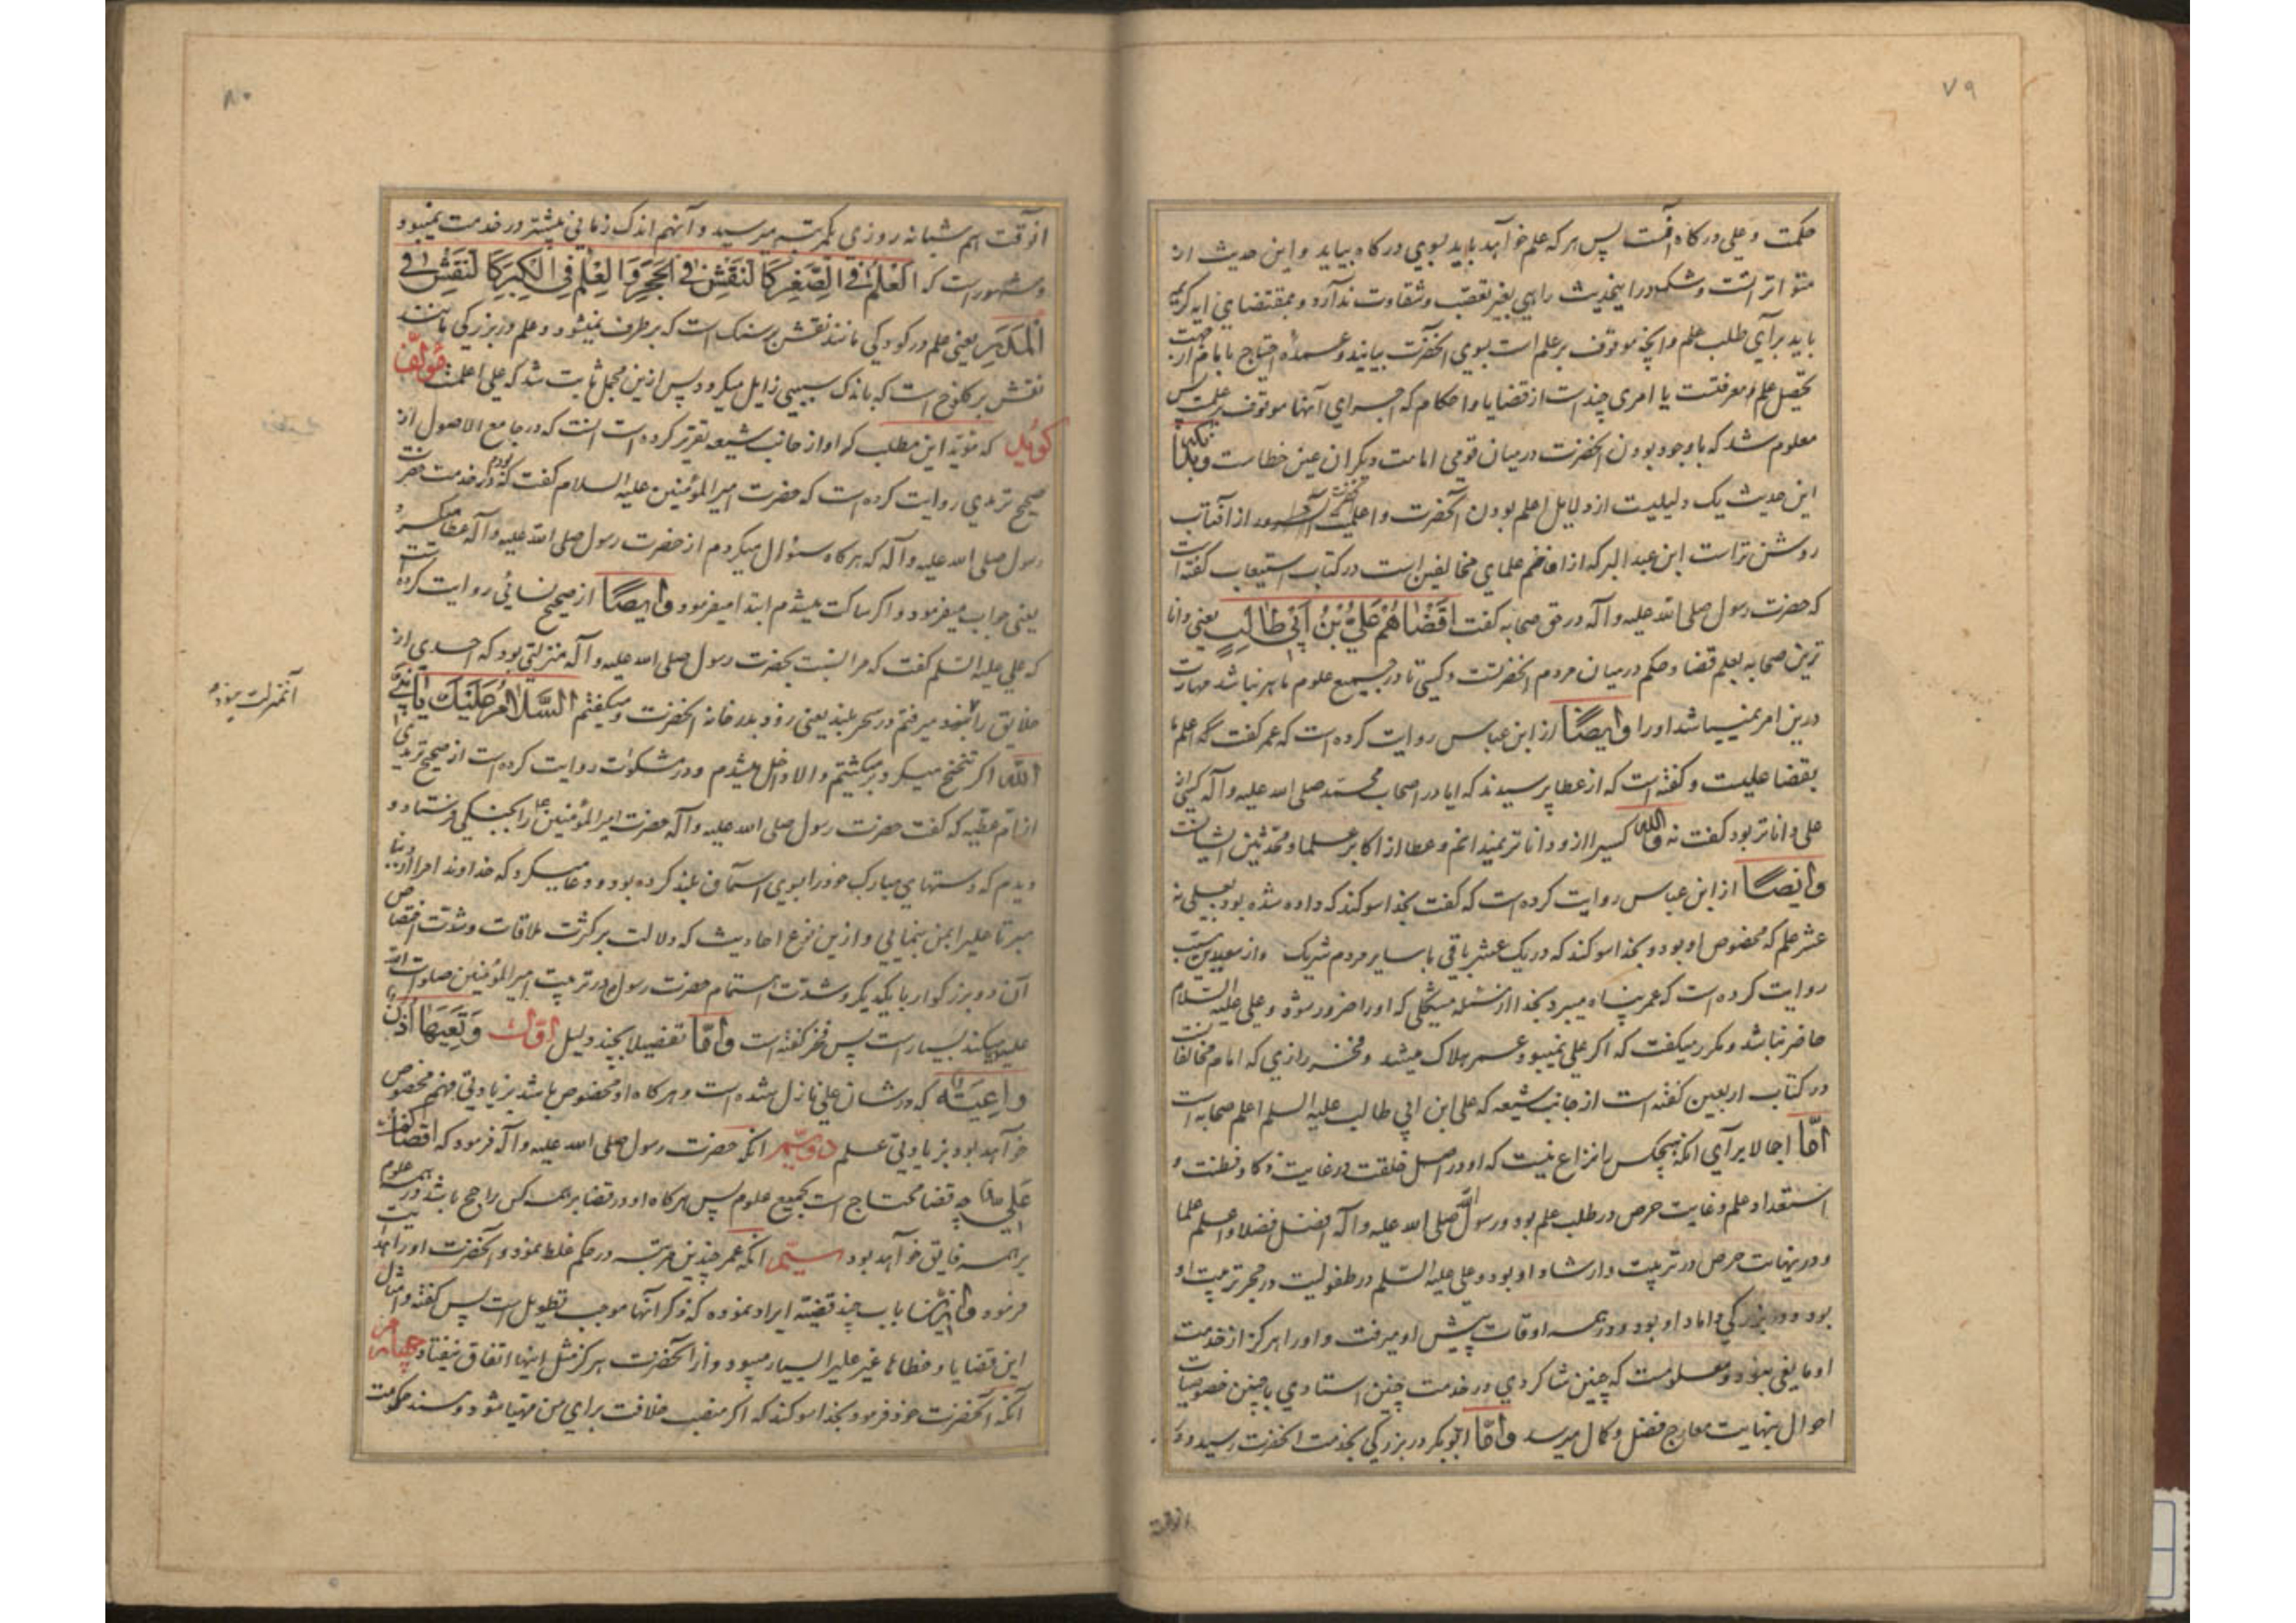 ۷۹
حکمت و علی درگاه آنست پس هر که علم خواهد باید بسوی درگاه بیاید و این حدیث از
متواتر است و شک در این حدیث راهی بغیر تعصب و شقاوت ندارد و بمقتضای آیه کریمه
باید برای طلب علم و آنچه موقوف بر علم است بسوی آنحضرت بیایند و عمده احتیاج با امام از جهت
تحصیل علم و معرفتست یا امری چند است از قضایا و احکام که اجرای آنها موقوف بر علمست پس
معلوم شد که با وجود بودن آنحضرت در میان قومی امامت دیگران عین خطاست
این حدیث یک دلیلیست از دلایل اعلم بودن آنحضرت و اعلمیت آنسرور از آفتاب
روشن تر است ابن عبد البر که از افاخم علمای مخالفین است در کتاب استیعاب گفته است
که حضرت رسول صلی الله علیه و آله در حق صحابه گفت اَقْضَاهُمْ عَلِیُّ بْنُ اَبِی طَالِبٍ یعنی دانا
ترین صحابه بعلم قضا و حکم در میان مردم آنحضرتست و کسی تا در جمیع علوم ماهر نباشد مهارت
درین امر نمیباشد او را وایضا از ابن عباس روایت کرده است که عمر گفت که اعلم ما
بقضا علیست و گفته است که از عطا پرسیدند که ایا در اصحاب محمد صلی الله علیه و آله کسی از
علی داناتر بود گفت نه والله کسیرا از و داناتر نمیدانم و عطا از اکابر علما و محدثین ایشانست
وایضا از ابن عباس روایت کرده است که گفت بخدا سوکند که داده شده بود بعلی نه
عشر علم که مخصوص او بود و بخدا سوکند که در یک عشر باقی با سایر مردم شریک و از سعید بن مسیب
روایت کرده است که عمر پناه میبرد بخدا از مسئله مشکلی که او را ضرور شود و علی علیه السلام
حاضر نباشد و مکرر میگفت که اگر علی نمیبود عمر هلاک میشد و فخر رازی که امام مخالفانست
در کتاب اربعین گفته است از جانب شیعه که علی ابن ابی طالب علیه السلم اعلم صحابه است
امّا اجمالا برای آنکه هیچکس را نزاع نیست که او در اصل خلقت در غایت ذکا و فطنت و
استعداد علم و غایت حرص در طلب علم بود و رسول الله صلی الله علیه و آله افضل فضلا و اعلم علما
و در نهایت حرص در تربیت و ارشاد او بود و علی علیه السلم در طفولیت در حجر تربیت او
بود و در بزرگی داماد او بود و در همه اوقات پیش او میرفت و او را هرگز از خدمت
او مانعی نبود و معلومست که چنین شاکردی در خدمت چنین استادی با چنین خصوصیات
احوال بنهایت معارج فضل و کمال میرسد وامّا ابوبکر در بزرگی بخدمت آنحضرت رسید و در
انوقت
۸۰
انوقت هم شبانه روزی یکمرتبه میرسید و آنهم اندک زمانی بیشتر در خدمت نمیبود و
و مشهور است که اَلْعِلْمُ فِی الصِّغَرِ کَالنَّقْشِ فِی الْحَجَرِ وَ الْعِلْمُ فِی الْکِبَرِ کَالنَّقْشِ فِی
الْمَدَرِ یعنی علم در کودکی مانند نقش بر سنک است که بر طرف نمیشود و علم در بزرگی مانند
نقش بر کلوخ است که باندک سببی زایل میکردد پس ازین مجمل ثابت شد که علی اعلمست مؤلف
گوید که مؤید این مطلب که او از جانب شیعه تقریر کرده است آنست که در جامع الاصول از
صحیح ترمدی روایت کرده است که حضرت امیر المؤمنین علیه السلام گفت که بودم در خدمت حضرت
رسول صلی الله علیه و آله که هر گاه سؤال میکردم از حضرت رسول صلی الله علیه و آله عطا میکرد
یعنی جواب میفرمود و اگر ساکت میشدم ابتدا میفرمود وایضا از صحیح نسائی روایت کرده است
که علی علیه السلم گفت که مرا نسبت بحضرت رسول صلی الله علیه و آله منزلتی بود که احدی از
خلایق را نبود میرفتم در سحر بلند یعنی زود بدر خانه آنحضرت و میگفتم اَلسَّلامُ عَلَیْکَ یَا نَبِیَّ
آنمنزلت نبود
اللّه اگر تنحنح میکرد بر میکشتم و الا داخل میشدم و در مشکوات روایت کرده است از صحیح ترمدی
از ام عطیه که گفت حضرت رسول صلی الله علیه و آله حضرت امیر المؤمنین را بجنگی فرستاد و
دیدم که دستهای مبارک خود را بسوی آسمان بلند کرده بود و دعا میکرد که خداوندا مرا از دنیا
مبر تا علیرا بمن بنمایی و ازین نوع احادیث که دلالت بر کثرت ملاقات و شدت اختصاص
آن دو بزرگوار با یکدیگر و شدت اهتمام حضرت رسول در تربیت امیر المؤمنین صلوات الله
علیه میکند بسیار است پس فخر گفته است وامّا تفصیلا بچند دلیل اوّل وَ تَعِیَهَا اُذُنٌ
وَاعِیَةٌ که در شان علی نازل شده است و هر گاه او مخصوص باشد بزیادتی فهم مخصوص
خواهد بود بزیادتی علم دویّم انکه حضرت رسول صلی الله علیه و آله فرمود که اقضاکم
عَلِیٌّ قضا محتاج است بجمیع علوم پس هر گاه او در قضا بر همه کس راجح باشد در همه علوم
بر همه فایق خواهد بود سیّم انکه عمر چندین مرتبه در حکم غلط نمود و آنحضرت او را هدایت
فرمود باب چند قضیه ایراد نموده که ذکر آنها موجب تطویل است پس گفته و امثال
این قضایا و خطاها غیر علیرا بسیار میبود و از آنحضرت هرگز مثل اینها اتفاق نیفتاد چهارم
آنکه آنحضرت خود فرمود بخدا سوکند که اگر منصب خلافت برای من مهیا شود و مسند حکومت